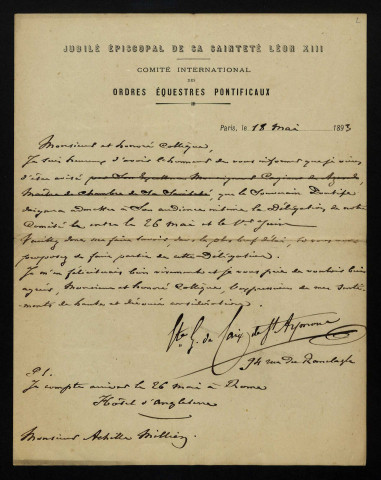 2
JUBILÉ ÉPISCOPAL DE SA SAINTETÉ LÉON XIII
COMITÉ INTERNATIONAL
DES
ORDRES ÉQUESTRES PONTIFICAUX
Paris, le 18 mai 1893
Monsieur et honoré Collègue,
Je suis heureux d'avoir l'honneur de vous informer que je viens
d'être avisé par Son Excellence Monseigneur
Maître de Chambre de Sa Sainteté, que le Souverain Pontife
daignera admettre à Son audience intime la Délégation de notre
Comité le entre le 26 mai et le 1er Juin
Veuillez donc me faire savoir, dans le plus bref délai, si vous vous
proposez de faire partie de cette Délégation.
Je m'en féliciterais bien vivement et je vous prie de vouloir bien
agréer, Monsieur et honoré Collègue, l'expression de mes senti-
ments de haute et dévouée considération.
Cte G. de Caix de St Aymour
94 rue du Ranelagh
P.S.
Je compte arriver le 26 mai à Rome
Hôtel d'Angleterre
Monsieur Achille Millien